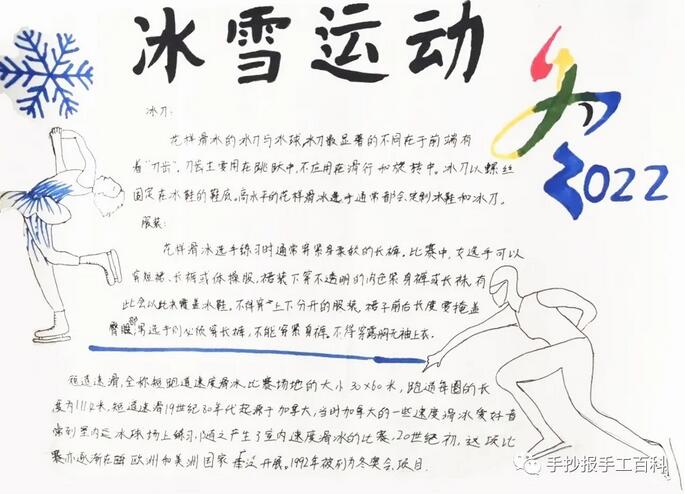 冰雪运动
冰刀:
花样滑冰的冰刀与冰球冰刀最显著的不同在于前端有
着"刀齿"。刀齿主要用在跳跃中,不应用在滑行和旋转中。冰刀以螺丝
固定在冰鞋的鞋底。高水平的花样滑冰选手通常都会定制冰鞋和冰刀。
2022
服装:
花样滑冰选手练习时通常穿紧身柔软的长裤。比赛中,女选手可以
穿短裙、长裤或体操服,裙装下穿不透明的肉色紧身裤或长袜,有
此会以此来覆盖冰鞋。不得穿上下分开的服装。裙子前后长度要掩盖
臀股,男选手则必须穿长裤,不能穿紧身裤。不得穿露胸无袖上衣.
短道速滑,全称短跑道速度滑冰.比赛场地的大小30×60米,跑道每圈的长
度为111.12米,短道速滑19世纪80年代起源于加拿大,当时加拿大的一些速度滑冰爱好者
常到室内冰球场上练习,产生了室内速度滑冰的比赛,20世纪初,这项比
赛亦逐渐在欧洲和美洲国家广泛开展。1992年被列为冬奥会项目.
手抄报手工百科